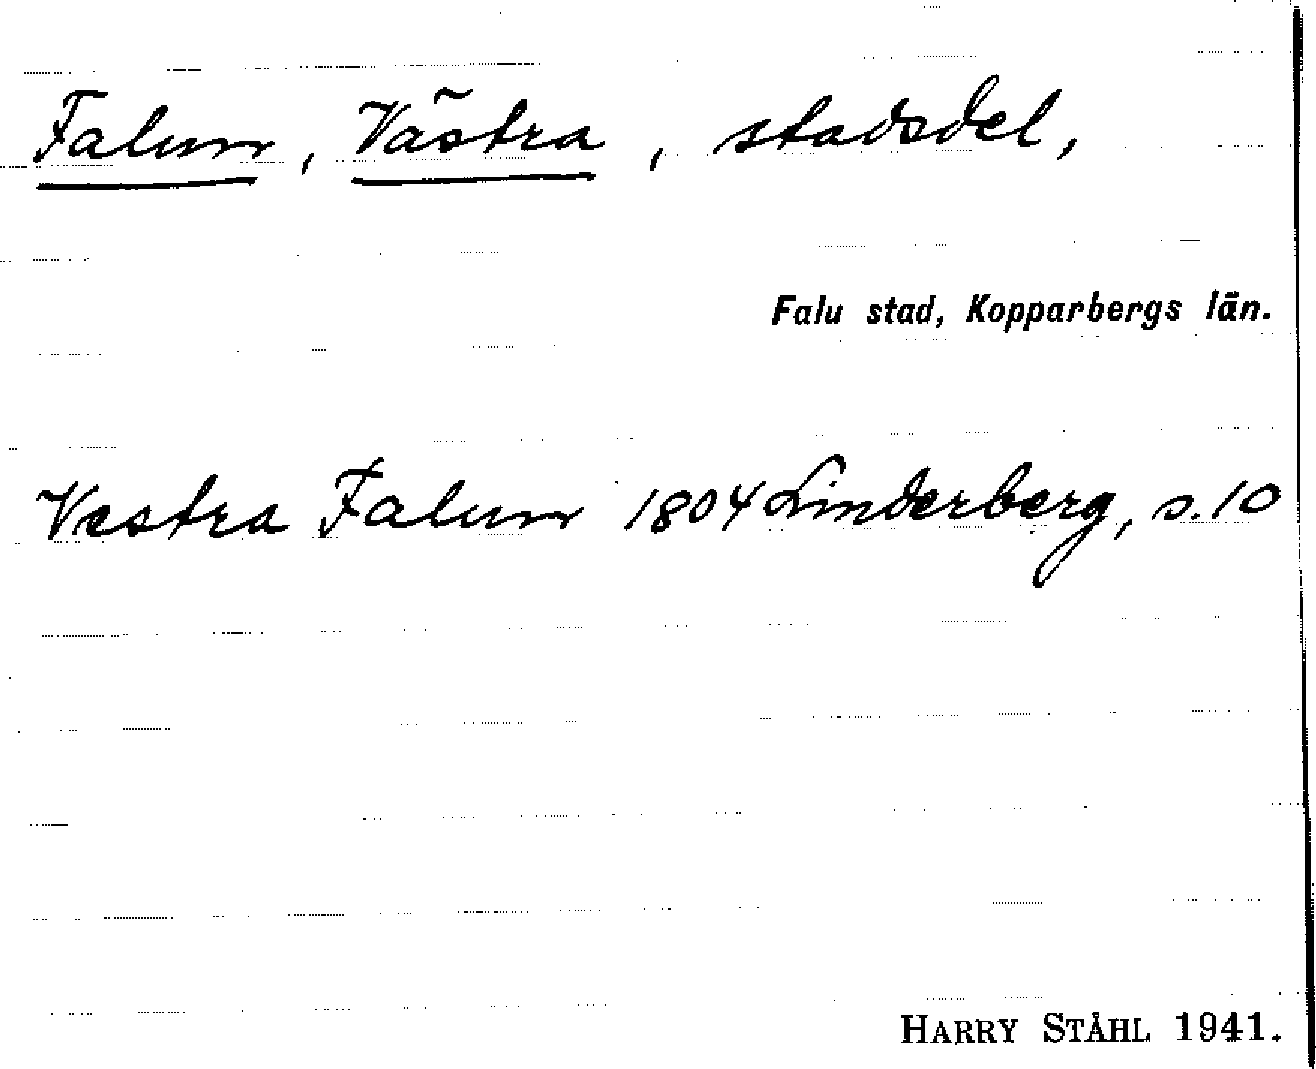 Falun, Västra, stadsdel,
Falu stad, Kopparbergs län.
Vestra Falun 1804 Linderberg, s. 10
HARRY STÅHL 1941.